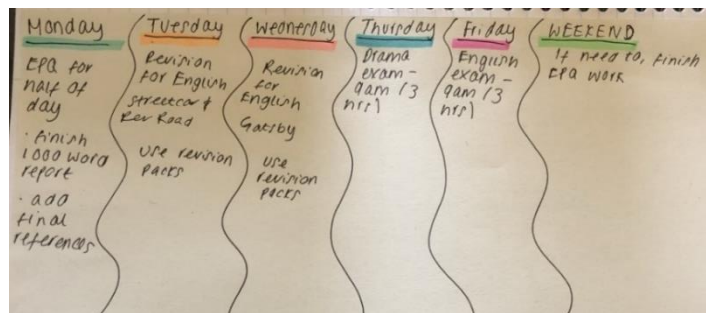 Monday
EPQ for
half of
day
· finish
1000 word
report
· add
final
references
Tuesday
Revision
for English
streetcar &
Rev Road
Use revision
packs
Wednesday
Revision
for
English
Gatsby
use
revision
packs
Thursday
Drama
exam -
9am (3
hrs)
Friday
English
exam -
9am (3
hrs)
WEEKEND
If need to, finish
EPQ work